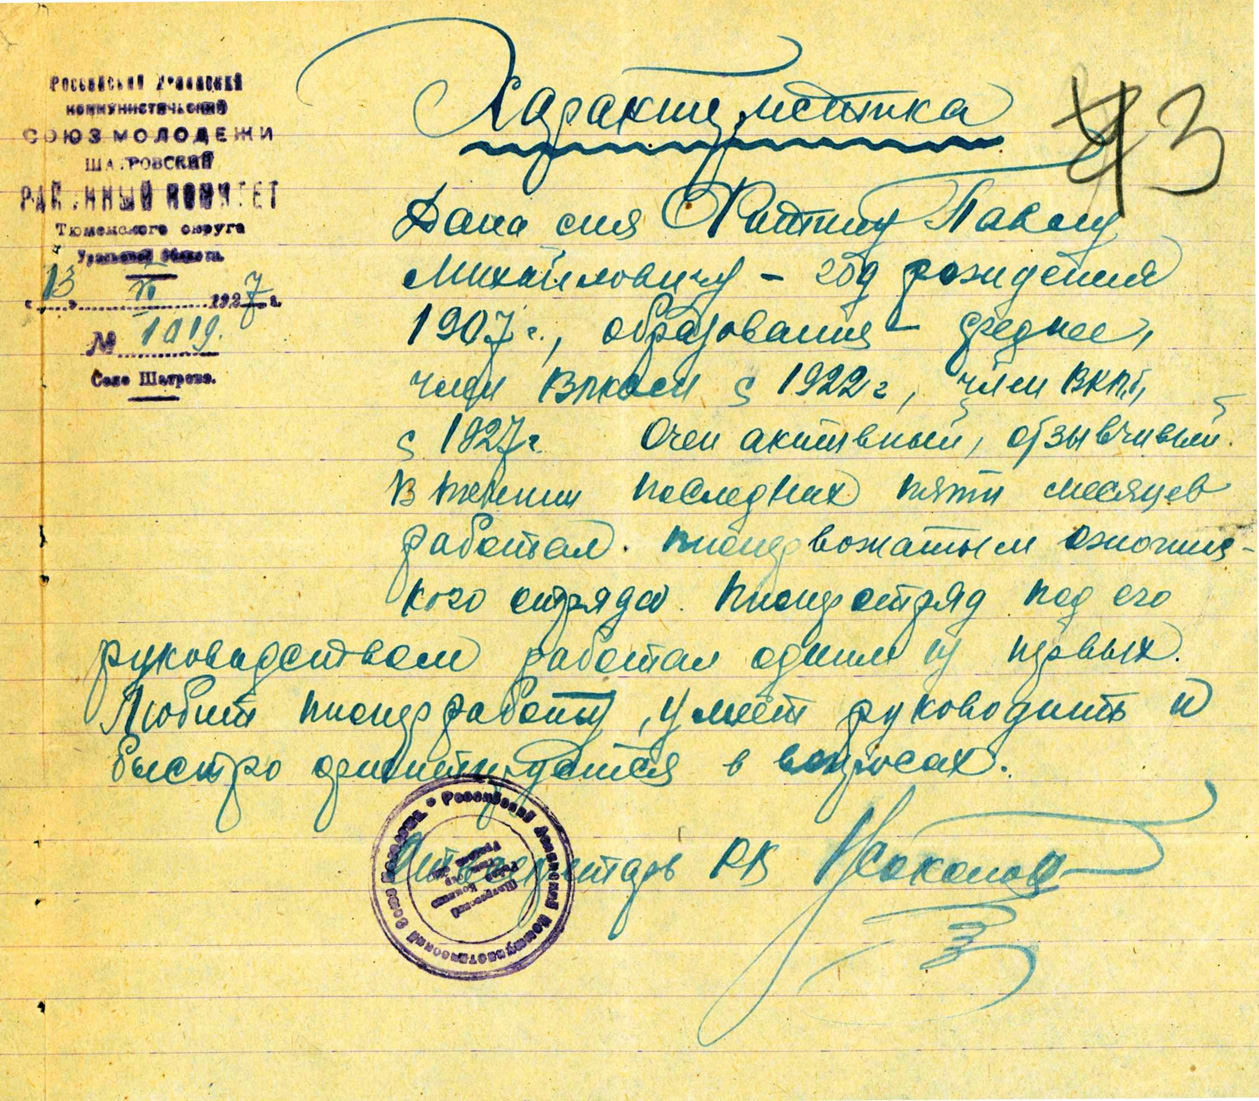 Российский Ленинский
коммунистический
СОЮЗ МОЛОДЕЖИ
ШАТРОВСКИЙ
РАЙОННЫЙ КОМИТЕТ
Тюменского округа
Уральской области
„13“ VI 1927 г.
№ 1019.
Село Шатрово.
Характеристика
43
Дана сия Павлу
Михайловичу – год рождения
1907 г., образования – среднее,
член ВЛКСМ с 1922 г, член ВКП,
с 1927 г Очен активный, отзывчивый.
В течении последних пяти месяцев
работал пионервожатым
кого отряда. Пионеротряд под его
руководством работал одним из первых.
Любит пионерработу, умеет руководить и
быстро ориентируется в вопросах.
Отв. секретарь РК
Российский Ленинский Коммунистический Союз Молодежи
Шатровский